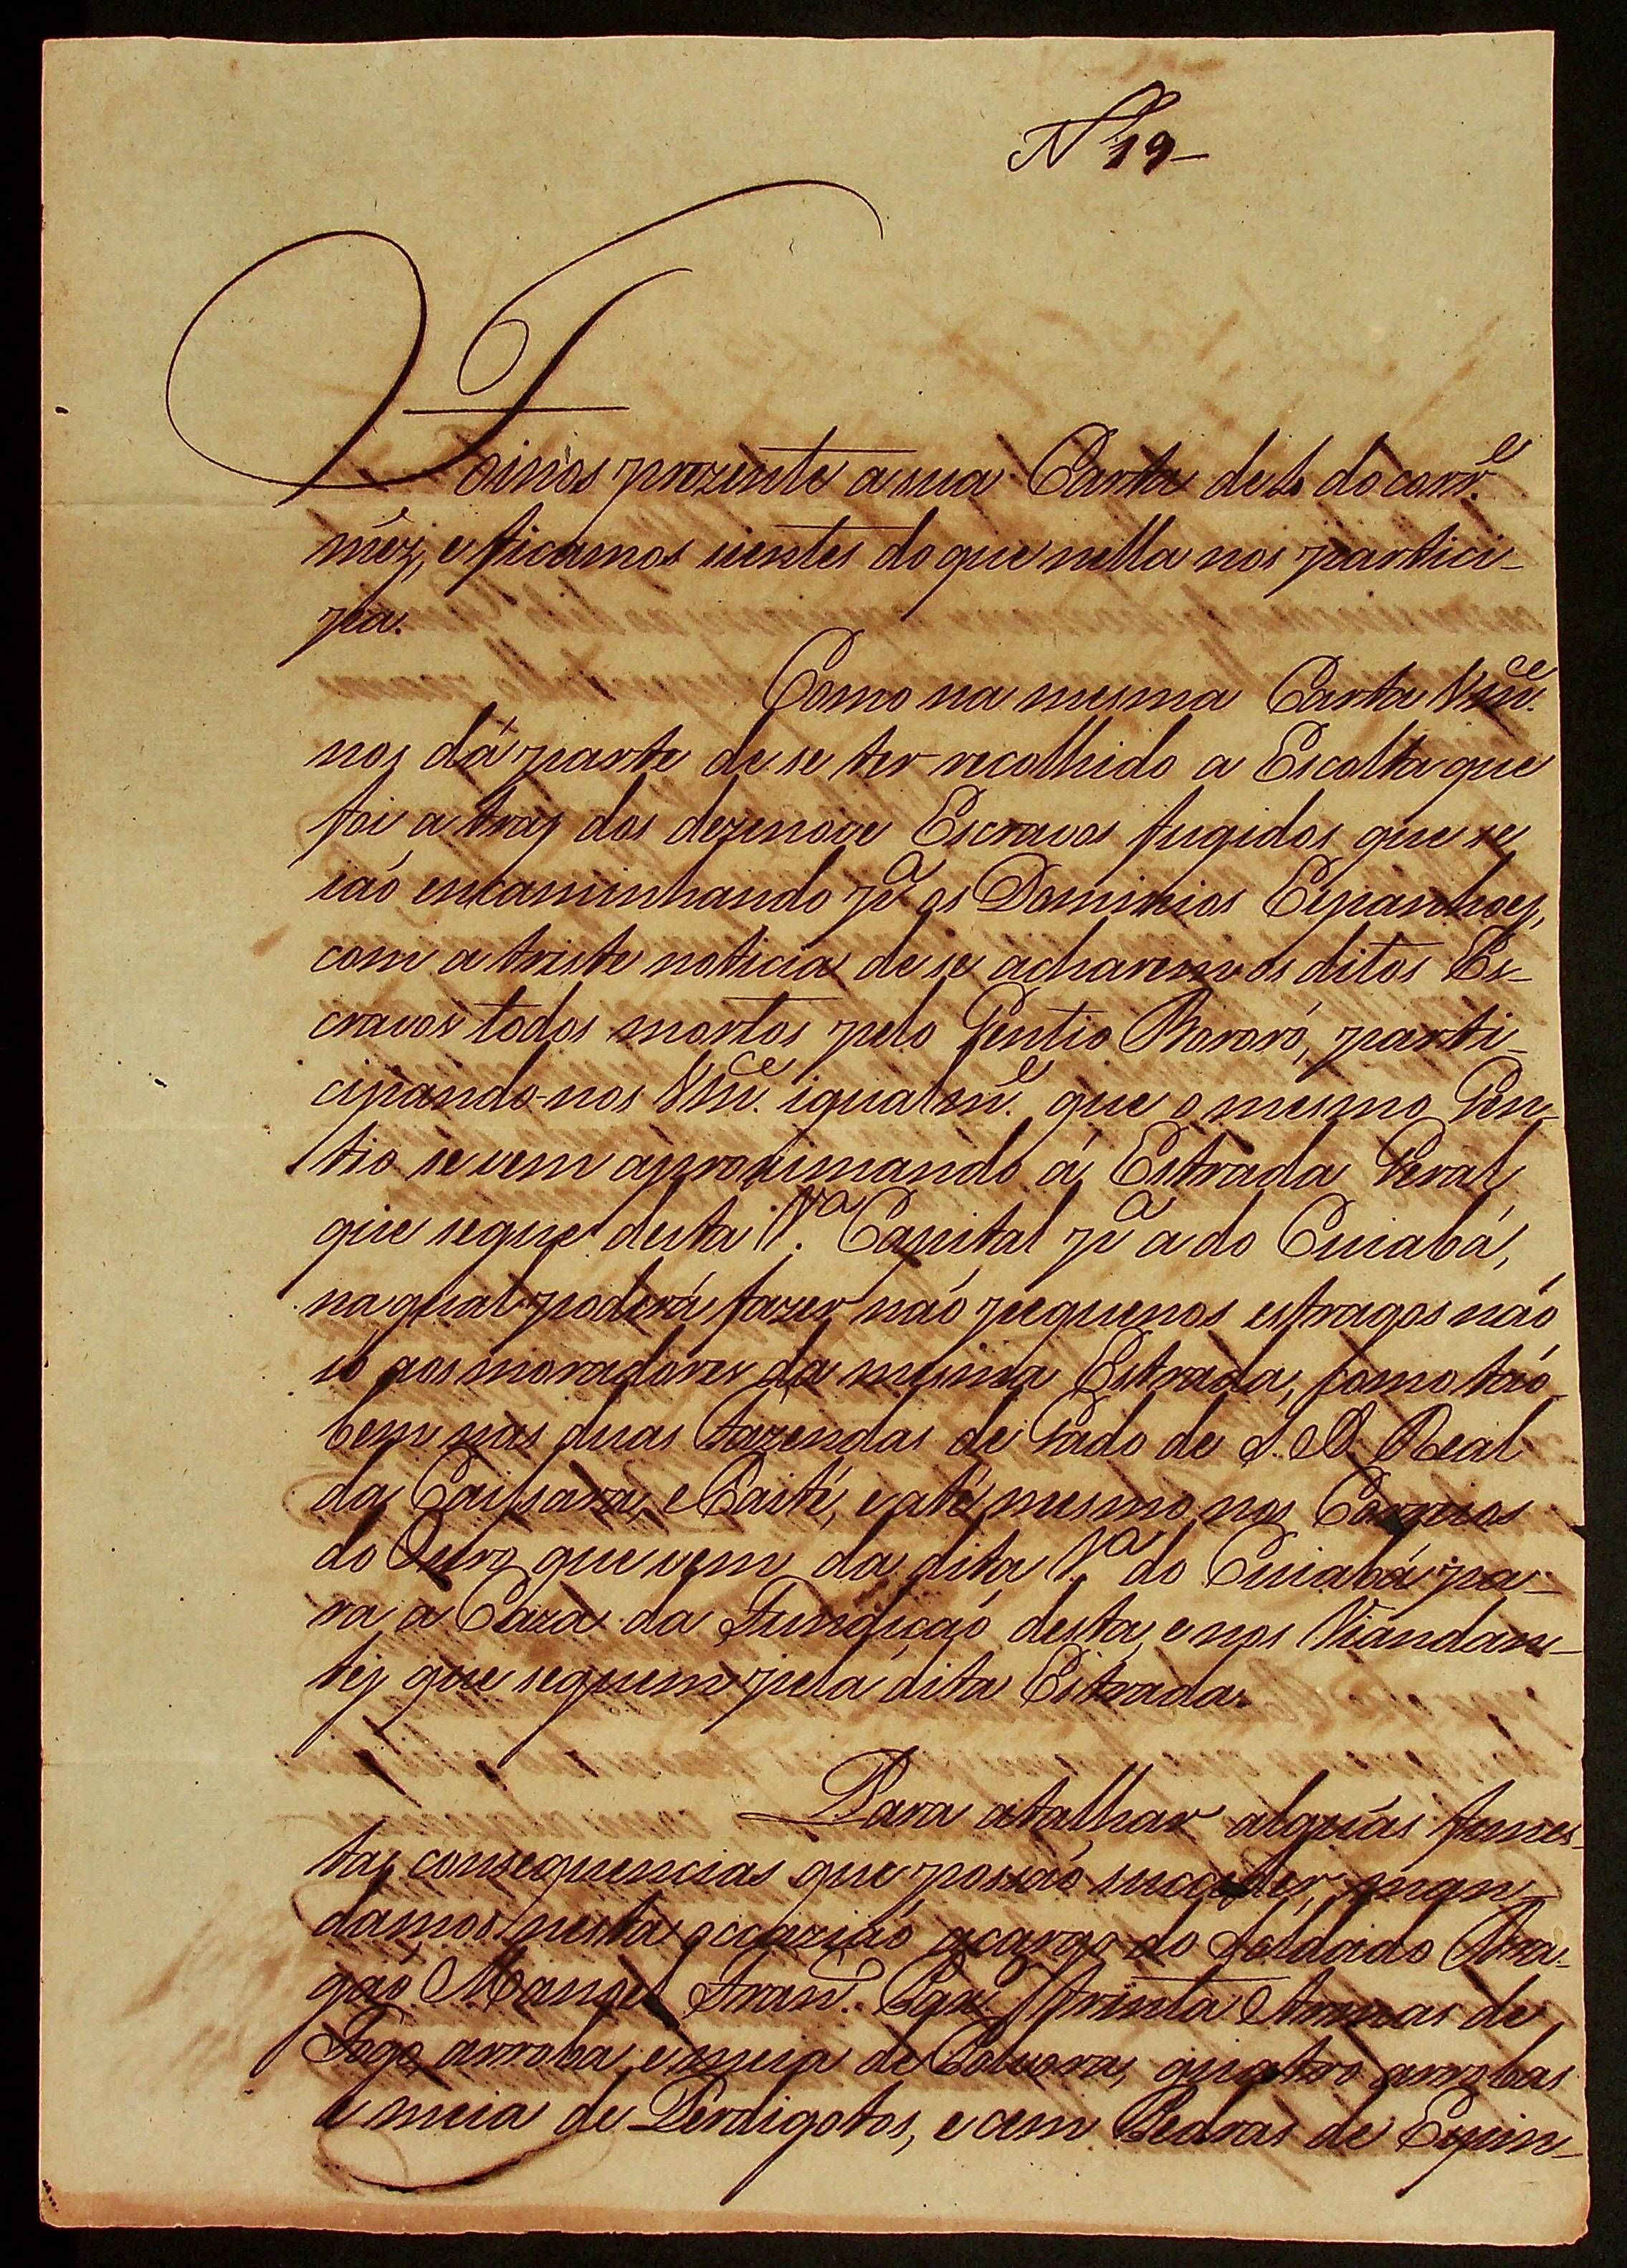 Nº 19-
Foinos prezente a sua Carta de 4 do corr.e
mêz, e ficamos cientes do que nella nos partici-
pa.
Como na mesma Carta Vm.ce
nos dá parte de se ter recolhido a Escolta que
foi a traz dos dezenove Escravos fugidos que se
ião encaminhando p.a os Dominios Espanhoes,
com a triste noticia de se acharem os ditos Es-
cravos todos mortos pelo Gentio Bororó, parti-
cipando-nos Vm.ce igualm.e que o mesmo Gen-
tio se vem aproximando á Estrada Geral,
que segue desta V.a Capital p.a a do Cuiabá,
na qual poderá fazer não pequenos estragos não
só aos moradores da mesma Estrada, como tão-
bem nas duas Fazendas de Gado de S. A. Real
da Caissara, e Caité, e até mesmo nos Correios
do Ouro que vem da dita V.a do Cuiabá pa-
ra a Caza da Fundição desta, e nos Viandan-
tes que seguem pela dita Estrada.
Para atalhar algũas funes-
tas consequencias que possão succeder, man-
damos nesta occazião a cargo do Soldado Dra-
gão Manoel Fran.co trinta Armas de
Fogo, arroba e meia de Polvora, quatro arrobas
e meia de Perdigotos, e cem Pedras de Espin-